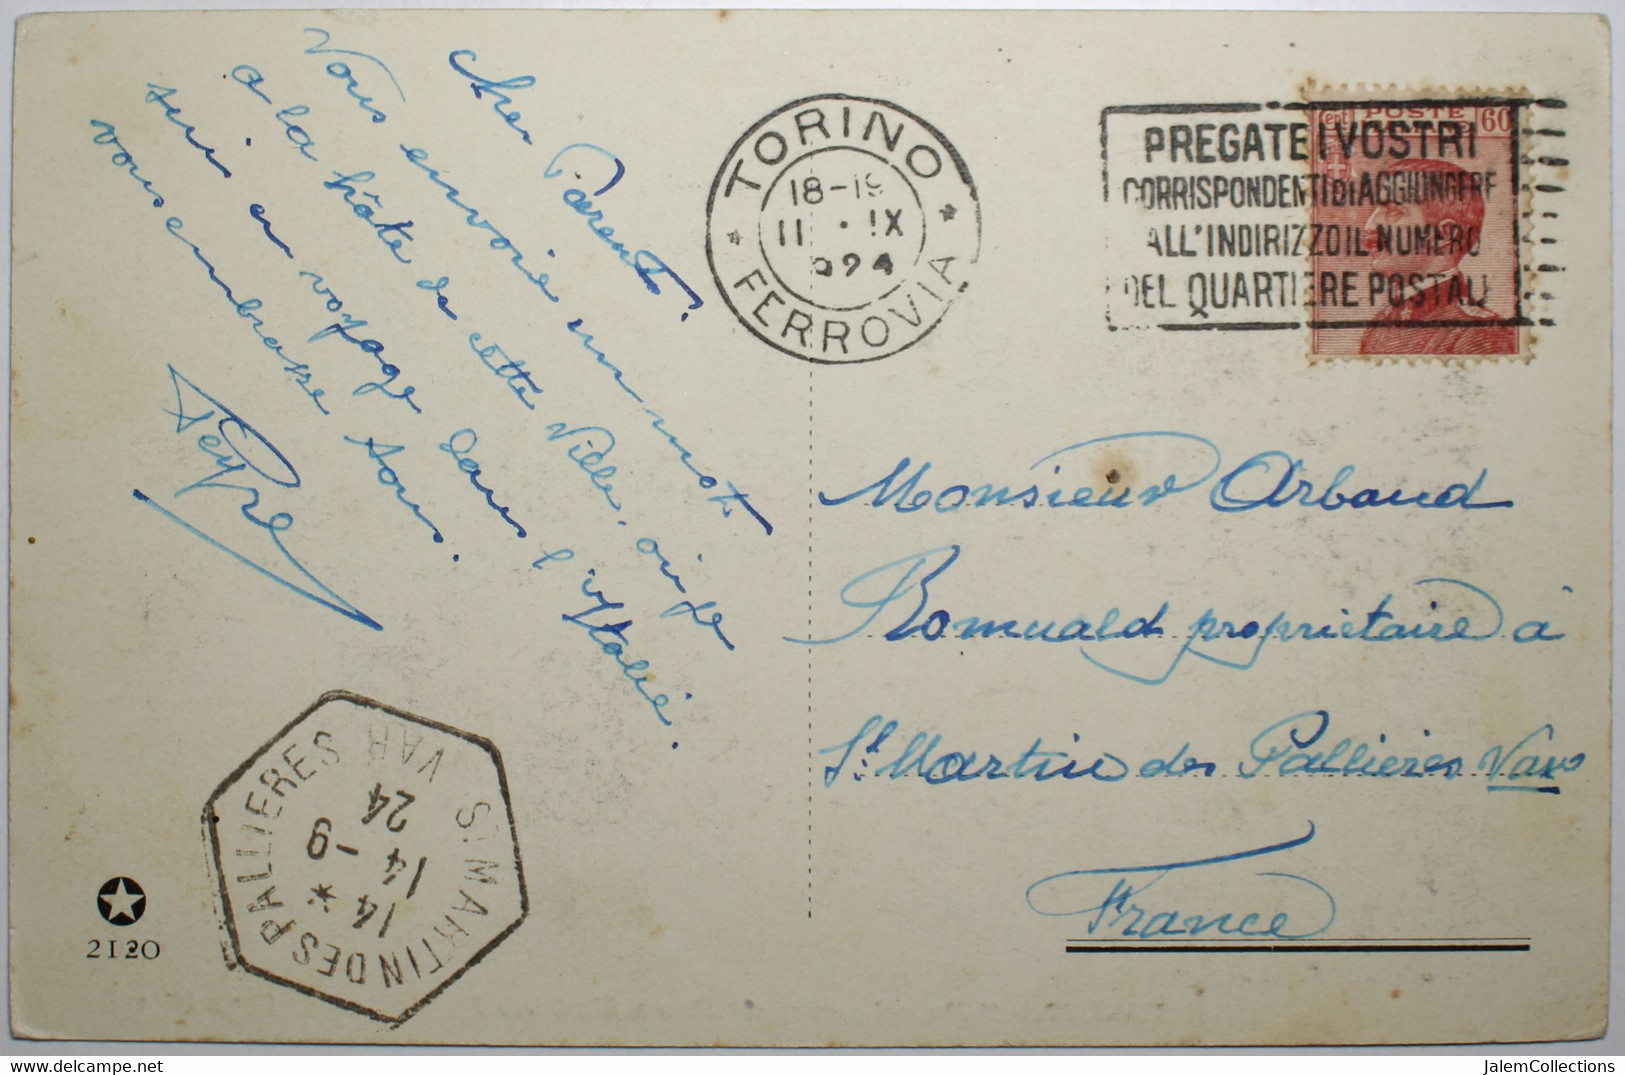 Cher Parent.
Vous envoie un mot
a la hâte de cette Ville. oû je
suis en voyage dans l'Itallie.
vous embrasse tous.
Peypre
TORINO
18-19
11 · IX
924
* FERROVIA *
PREGATE I VOSTRI
CORRISPONDENTI DI AGGIUNGERE
ALL'INDIRIZZO IL NUMERO
DEL QUARTIERE POSTALE
Cent POSTE 60
Monsieur Arbaud
Romuald propriétaire à
St. Martin des Pallieres Var
France
ST MARTIN DES PALLIERES VAR
14 *
14 -9
24
2120
JalemCollections